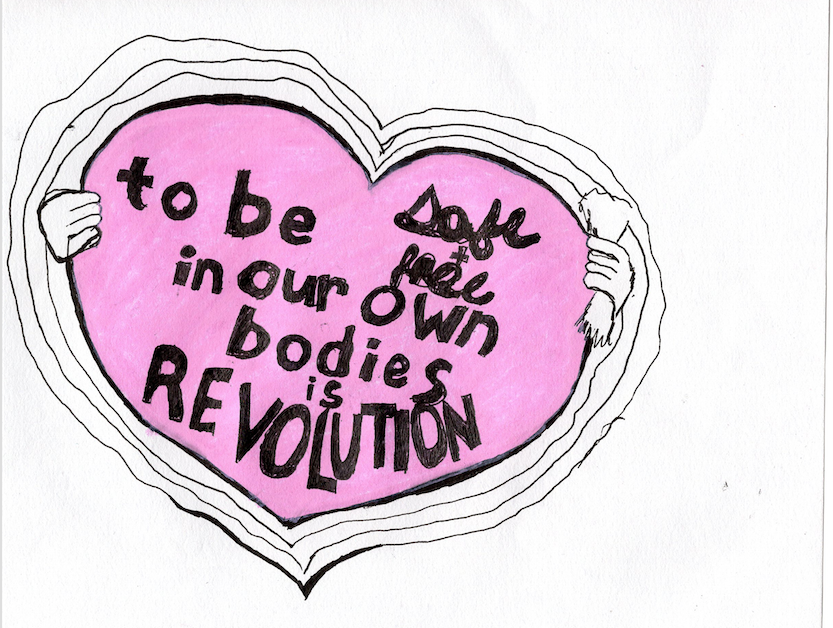 to be safe
+ free
in our own
bodies
is
REVOLUTION